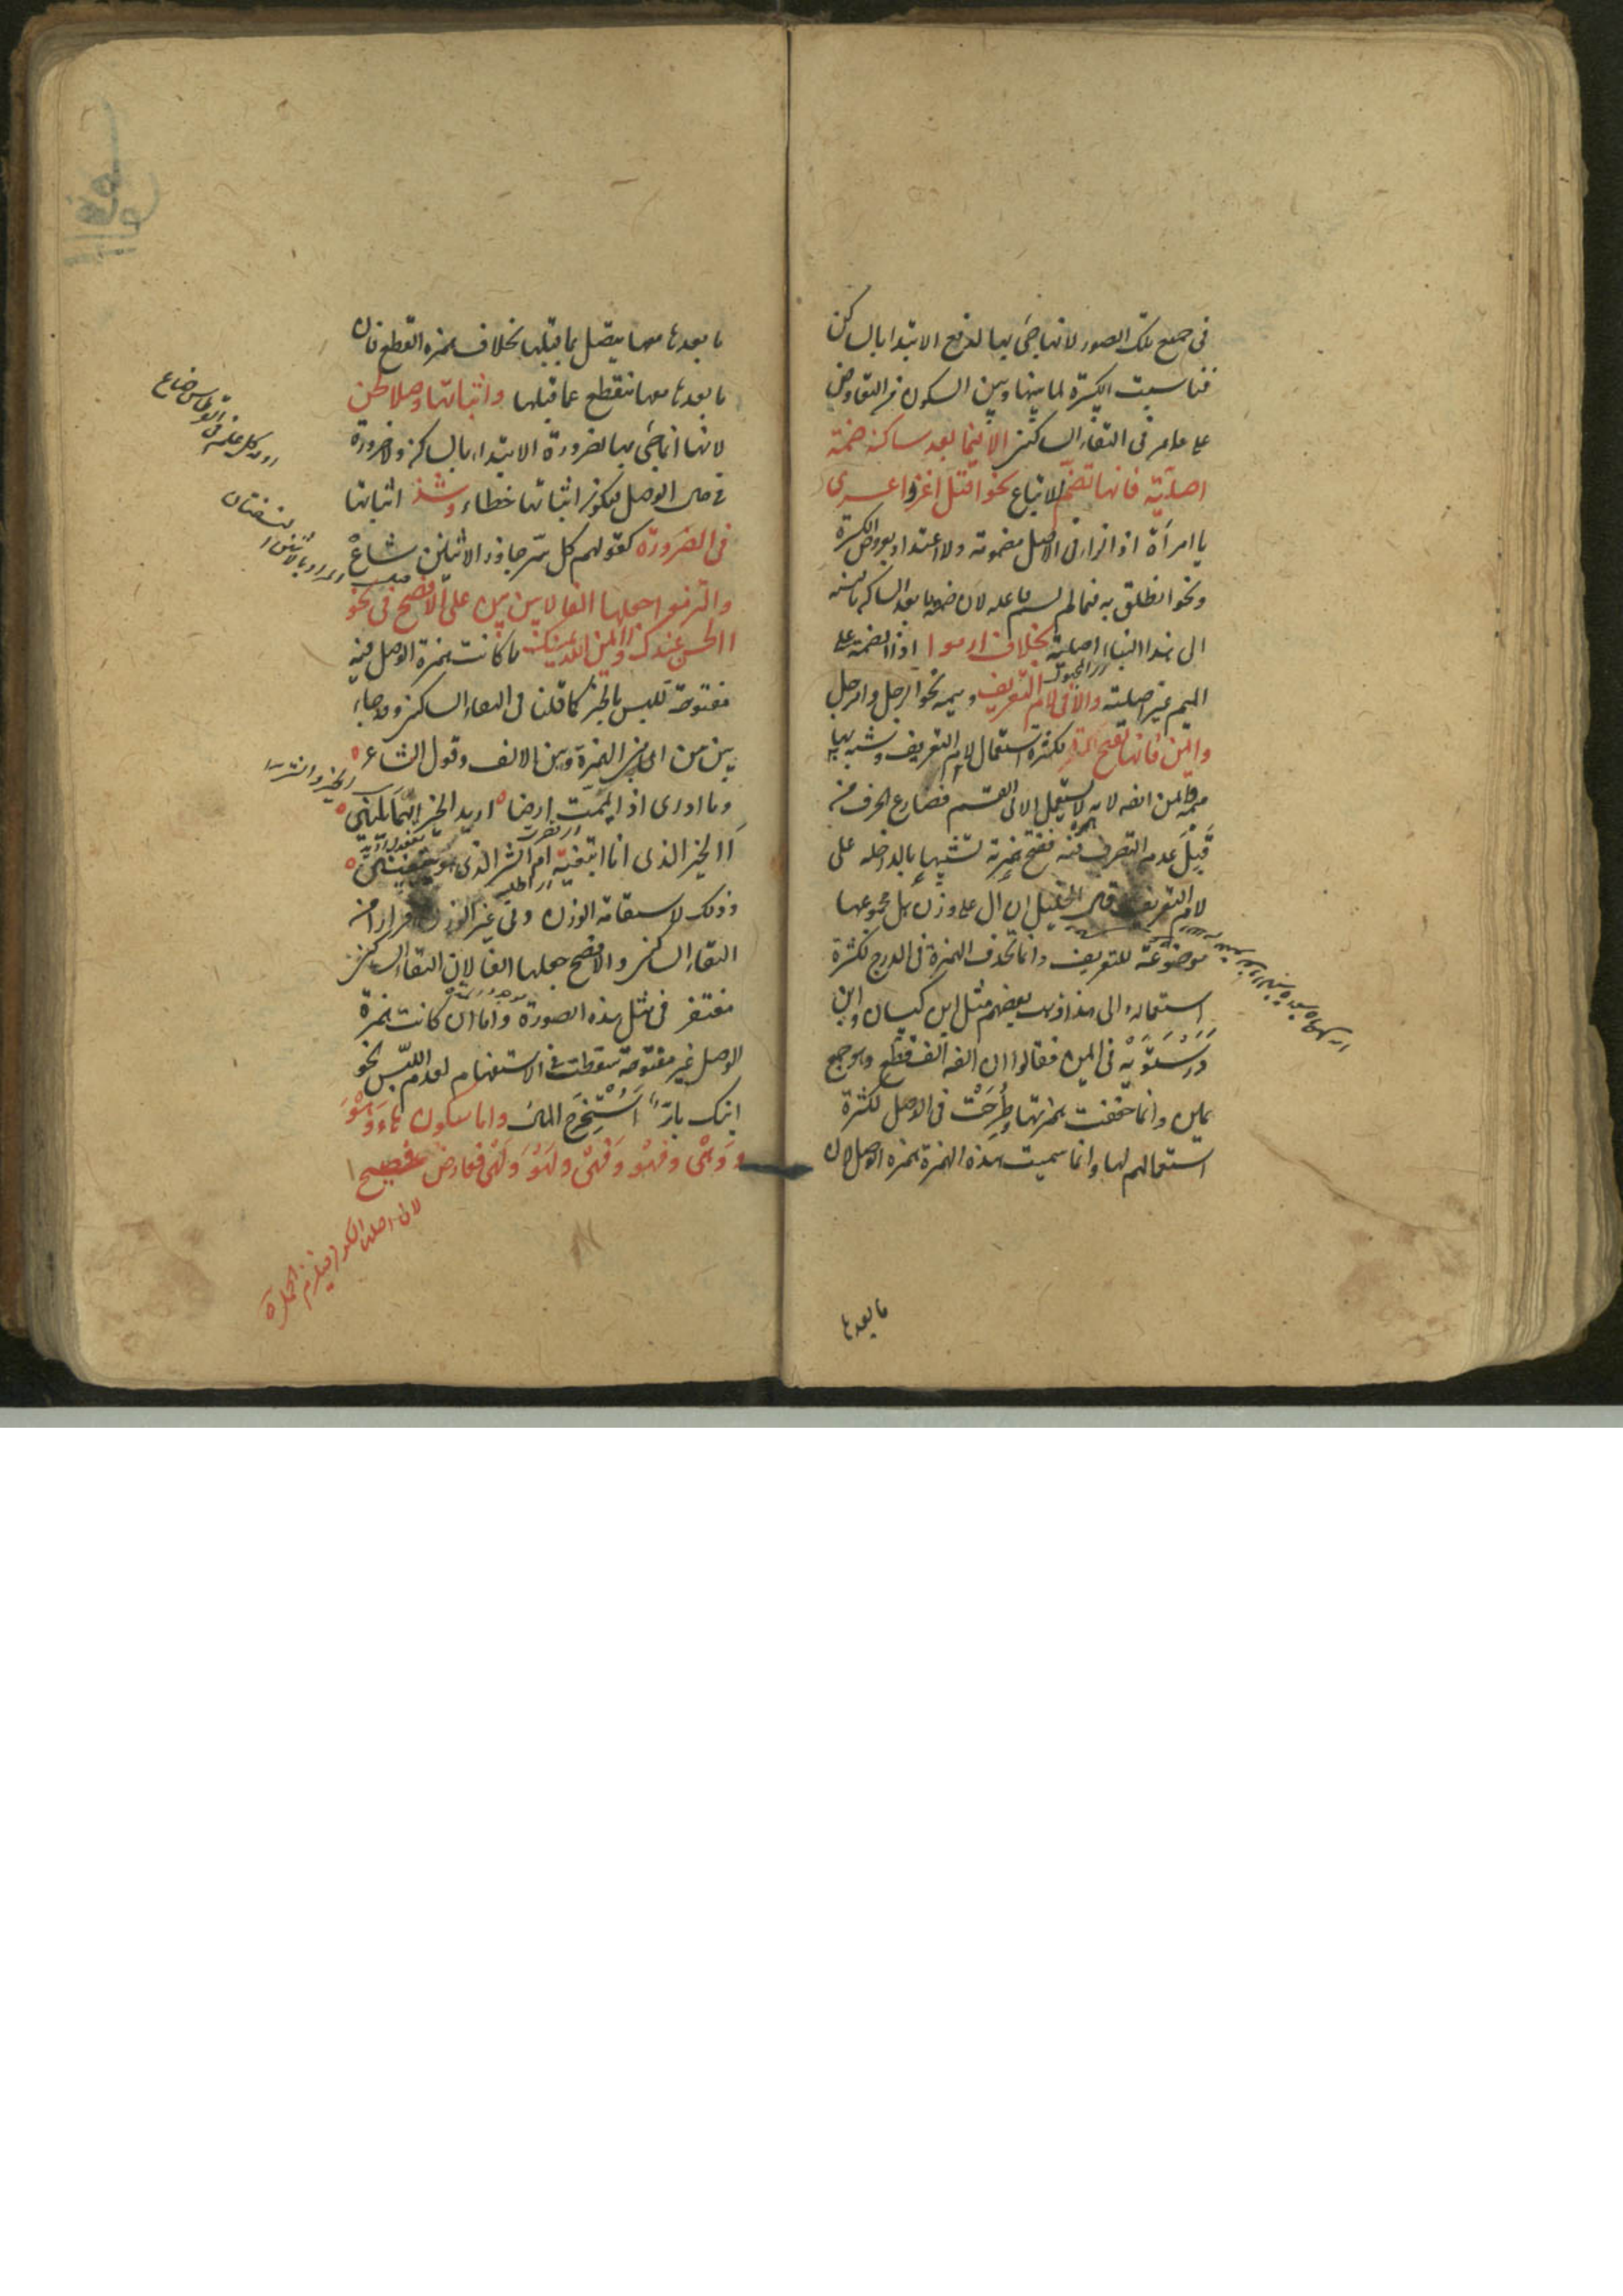 فى جميع تلك الصور لانها جئ بها لدفع الابتدا بالساكن
فناسبت الكسرة لما بينها وبين السكون من التعاوض
على ما مر فى التقاء الساكنين الا فيما بعد ساكنه ضمة
اصلية فانها تضم للاتباع نحو اقتل اغزو اغزى
يا امرأة اذ الزا فى الاصل مضمومة ولا اعتداد بعروض الكسرة
ونحو انطلق به فيما لم يسم فاعله لان ضم ما بعد الساكن بالنسبة
الى هذا البناء اصلية بخلاف ارموا اذ الضمة على
الميم غير اصلية والا فى لام التعريف وميمه نحو الرجل وامرجل
وايمن فانها تفتح لكثرة استعمال لام التعريف وشبه بها
ميمه وايمن الفه لانه لا يستعمل الا فى القسم فضارع الحرف من
قبل عدم التصرف فيه ففتح همزته تشبيها بالداخلة على
لام التعريف وقال الخليل ان ال على وزن بل مجموعها
موضوعة للتعريف وانما تحذف الهمزة فى الدرج لكثرة
استعماله والى هذا ذهب بعضهم مثل ابن كيسان وابن
درستويه فى ايمن فقالوا ان الفه الف قطع وهو جمع
يمين وانما خففت همزتها وطرحت فى الوصل لكثرة
استعمالهم لها وانما سميت هذه الهمزة همزة الوصل لان
ما بعدها
ما بعدها معها يتصل بما قبلها بخلاف همزة القطع فان
ما بعدها معها تنقطع عما قبلها واثباتها وصلا لحن
لانها انما جئ بها لضرورة الابتداء بالساكن ولا ضرورة
فى حال الوصل فيكون اثباتها خطاء وشذ اثباتها
فى الضرورة كقولهم كل سر جاوز الاثنين شاع
والتزموا جعلها الفا لا بين بين على الافصح فى نحو
االحسن عندك وا ايمن الله يمينك ما كانت همزة الوصل فيه
مفتوحة للبس بالخبر كما قلنا فى التقاء الساكنين وقد جاء
بين بين اى بين الهمزة وبين الالف وقول الشاعر
وما ادرى اذا يممت ارضا اريد الخير ايهما يلينى
أالخير الذى انا ابتغيه ام الشر الذى هو يبتغينى
وذلك لاستقامة الوزن وفى غير الوزن فرارا من
التقاء الساكنين والافصح جعلها الفا لان التقاء الساكنين
مغتفر فى مثل هذه الصورة واما ان كانت همزة
الوصل غير مفتوحة سقطت فى الاستفهام لعدم اللبس نحو
ابنك بار أستخرج المال واما سكون هاء وهو
ووهى وفهو وفهى ولهو ولهى فعارض فصيح